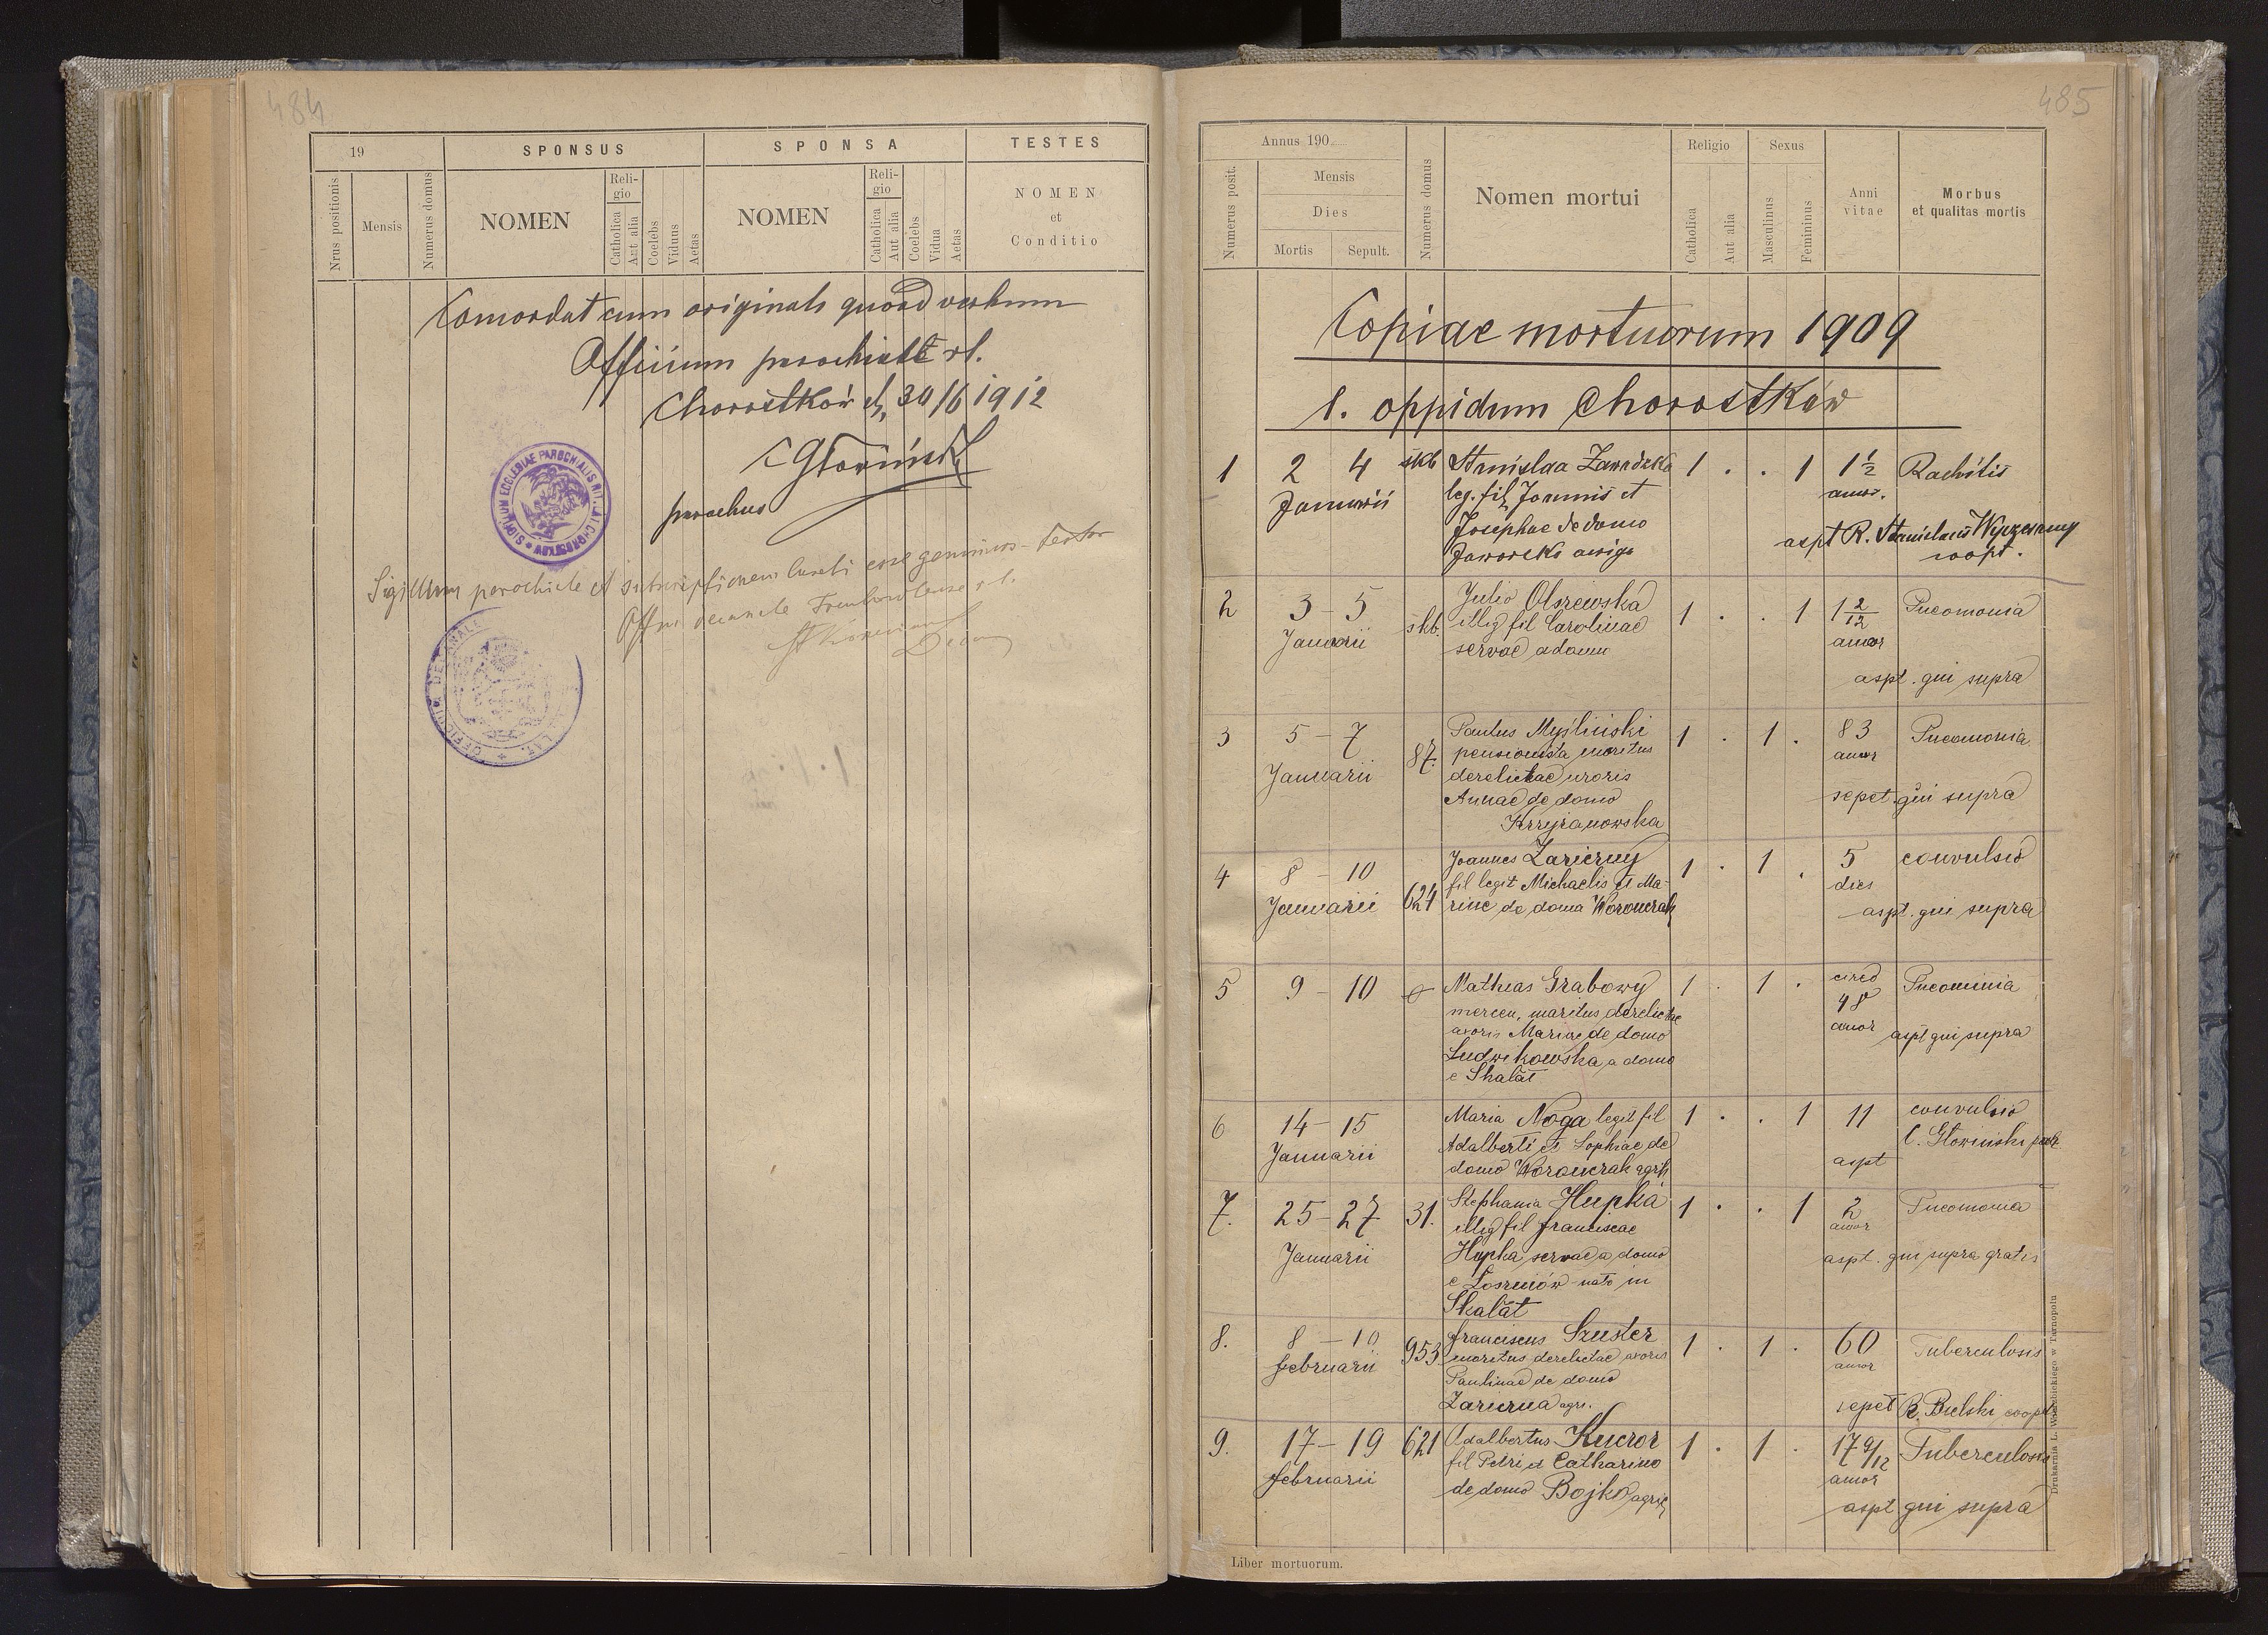 484
19
SPONSUS
SPONSA
TESTES
Nrus positionis
Mensis
Numerus domus
NOMEN
Reli-
gio
Catholica
Aut alia
Coelebs
Viduus
Aetas
NOMEN
Reli-
gio
Catholica
Aut alia
Coelebs
Vidua
Aetas
NOMEN
et
Conditio
Concordat cum originali quoad verbum
Officium parochiale rl.
Chorostków d, 30/6 1912
C Głowiński
parochus
SIGILLUM ECCLESIAE PAROCHIALIS RIT. LAT. CHOROSTKOV
Sigillum parochiale et subscriptionem Curati esse genuinos testor
Offm decanale Trembowlense r.l.
Decan
OFFICIUM DECANALE LAT.
485
Annus 190
Numerus posit.
Mensis
Dies
Mortis
Sepult.
Numerus domus
Nomen mortui
Religio
Catholica
Aut alia
Sexus
Masculinus
Femininus
Anni
vitae
Morbus
et qualitas mortis
Copiae mortuorum 1909
1. oppidum Chorostków
1 2 4 skb Stanislaa Zawadzka 1 . . 1 1 1/2 Rachitis
Januarii leg. fil, Joannis et annor.
Josephae de domo
Jaworska auriga aspt R. Stanislaus Wyrzesany
coopt.
2 3 - 5 skb. Julia Olszewska 1 . . 1 1 2/12 Pneomonia
Januarii illeg fil Carolinae annor
servae a domu
aspt. qui supra
3 5 - 7 87. Paulus Myśliński 1 . 1 . 83 Pneomonia
Januarii pensionista maritus annor
derelictae uxoris
Annae de domo sepet. qui supra
Krzyżanowska
4 8 - 10 624 Joannes Zarierny 1 . 1 . 5 convulsio
Januarii fil legit Michaelis et Ma- dies
rinae de domo Woronczak aspt. qui supra
5 9 - 10 Mathias Grabowy 1 . 1 . circa Pneominia
mercen. maritus derelictae 48
uxoris Mariae de domo annor aspt qui supra
Ludwikowska a domo
e Skałat
6 14 - 15 Maria Noga legit fil 1 . . 1 11 convulsio
Januarii Adalberti et Sophiae de C. Głowiński par
domo Woronczak agrh aspt
7. 25 - 27 31. Stephania Hupka 1 . . 1 2 Pneomonia
Januarii illeg fil Franciscae annor
Hupka servae a domo aspt. qui supra gratis
e Łoszniów nata in
Skałat
8. 8 - 10 953 Franciscus Szuster 1 . 1 . 60 Tuberculosis
Februarii maritus derelictae uxoris annor
Paulinae de domo
Zarierna agri. sepet R. Bielski coopt
9. 17 - 19 621 Adalbertus Kuczor 1 . 1 . 17 9/12 Tuberculosis
Februarii fil Petri et Catharinae annor
de domo Bojko agric aspt qui supra
Liber mortuorum.